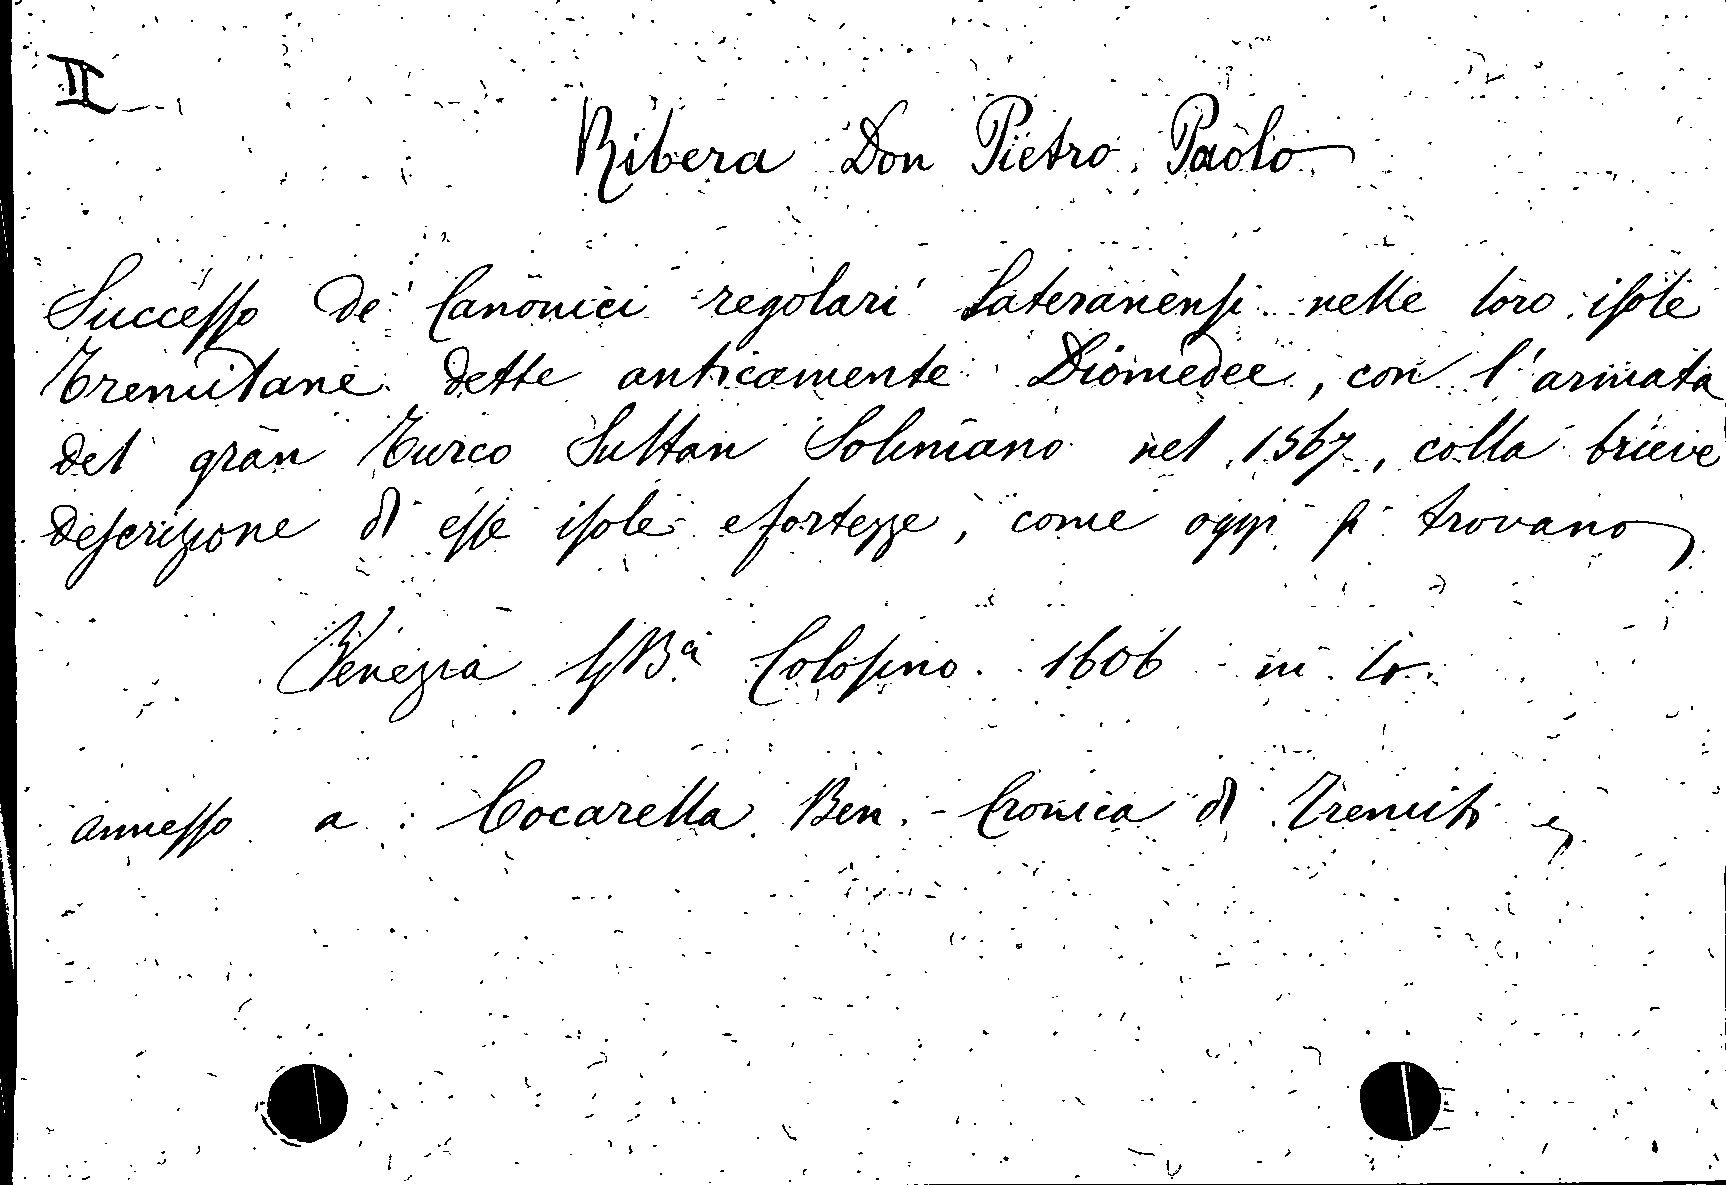 II
Ribera Don Pietro Paolo
Successo de' Canonici regolari Lateranensi nelle loro isole
Tremitane dette anticamente Diomedee, con l'armata
del gran Turco Sultan Solimano nel 1567, colla brieve
descrizione di esse isole e fortezze, come oggi si trovano
Venezia GBa Colosino 1606 in
annesso a Cocarella Ben. - Cronica di Tremiti